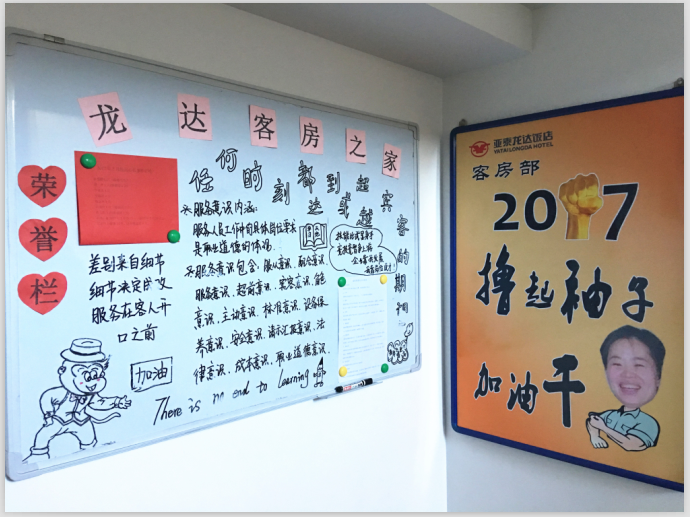 龙达客房之家
荣
誉
栏
任何时刻都达到或超越宾客的期望
差别来自细节
细节决定成交
服务在客人开
口之前
加油
服务意识内涵:
服务人员工作中的具体岗位要求
是职业道德的体现。
服务意识包含:服从意识、配合意识
服务意识、超前意识、宾客意识、角色
意识、主动意识、标准意识、设备保
养意识、安全意识、请示汇报意识、法
律意识、成本意识、职业道德意识。
There is no end to learning
亚泰龙达饭店
YATAI LONGDA HOTEL
客房部
2017
撸起袖子
加油干